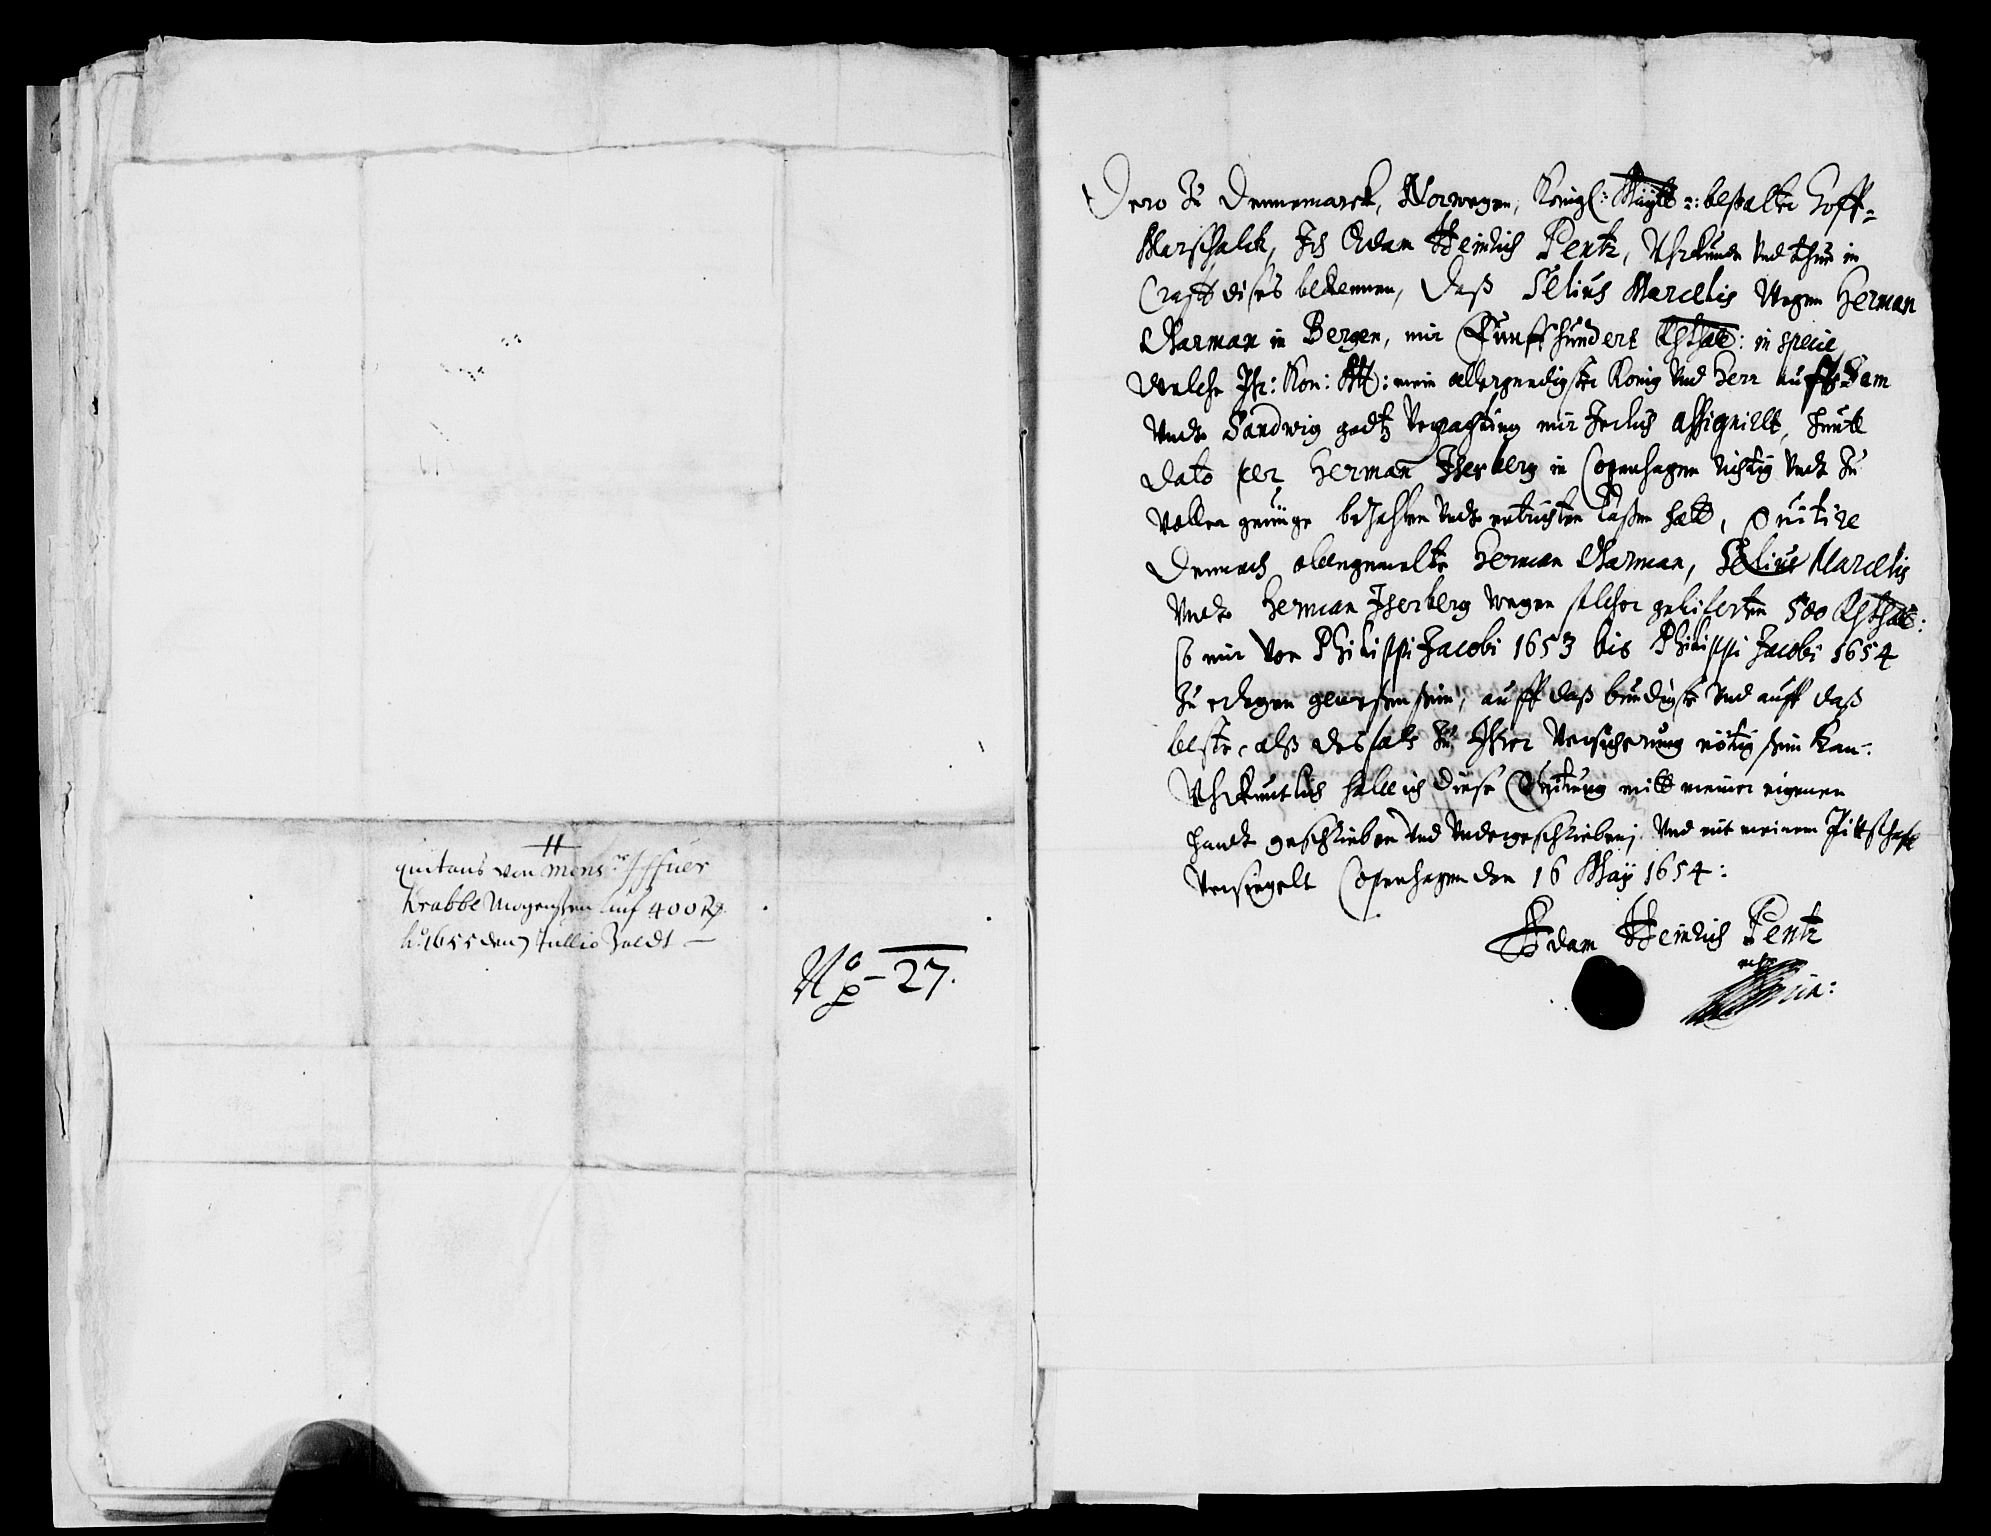 quitans von Mons:r Iffuer
Krabbe Mogensen auf 400 R
A:o 1655 den 7 Jullio Zaldt —
No 27.
Dero Zu Dennemarck, Norwegen, Königl: Maytt: bestalter Hoff-
Marschalck, Ich Adam Heinrich Pentz, Uhrkunde Und thue in
Crafft dises bekennen, Daß Selius Marcelis Wegen Herman
Garman in Bergen, mir Funffhundert Rthal: in specie
Welche Ihr: Kon: Mt: mein allergnedigster Konig Und Herr auff Dam
Undt Sandwig godtz Verpachtung mir Jerlich assignirtt, heutt
dato per Herman Iserberg in Copenhagen richtig Undt Zu
Voller genuge bezahlen Undt entrichten laßen hatt, Quitire
Demnach obengemelte Herman Garman, Selius Marcelis
Undt Herman Iserberg wegen solcher geliferten 500 Rthal:
so mir von Philippi Jacobi 1653 bis Philippi Jacobi 1654
Zu erlegen gewesen sein, auff daß bundigste Und auff daß
beste, alß desfals Zu Ihrer Versicherung nötig sein kan:
Uhrkuntlich hab ich diese Quitung mitt meiner eigenen
handt geschrieben Und Undergeschrieben, Und mit meinem Pittschafft
Versiegelt Copenhagen den 16 Maij 1654:
Adam Heinrich Pentz
mpria: